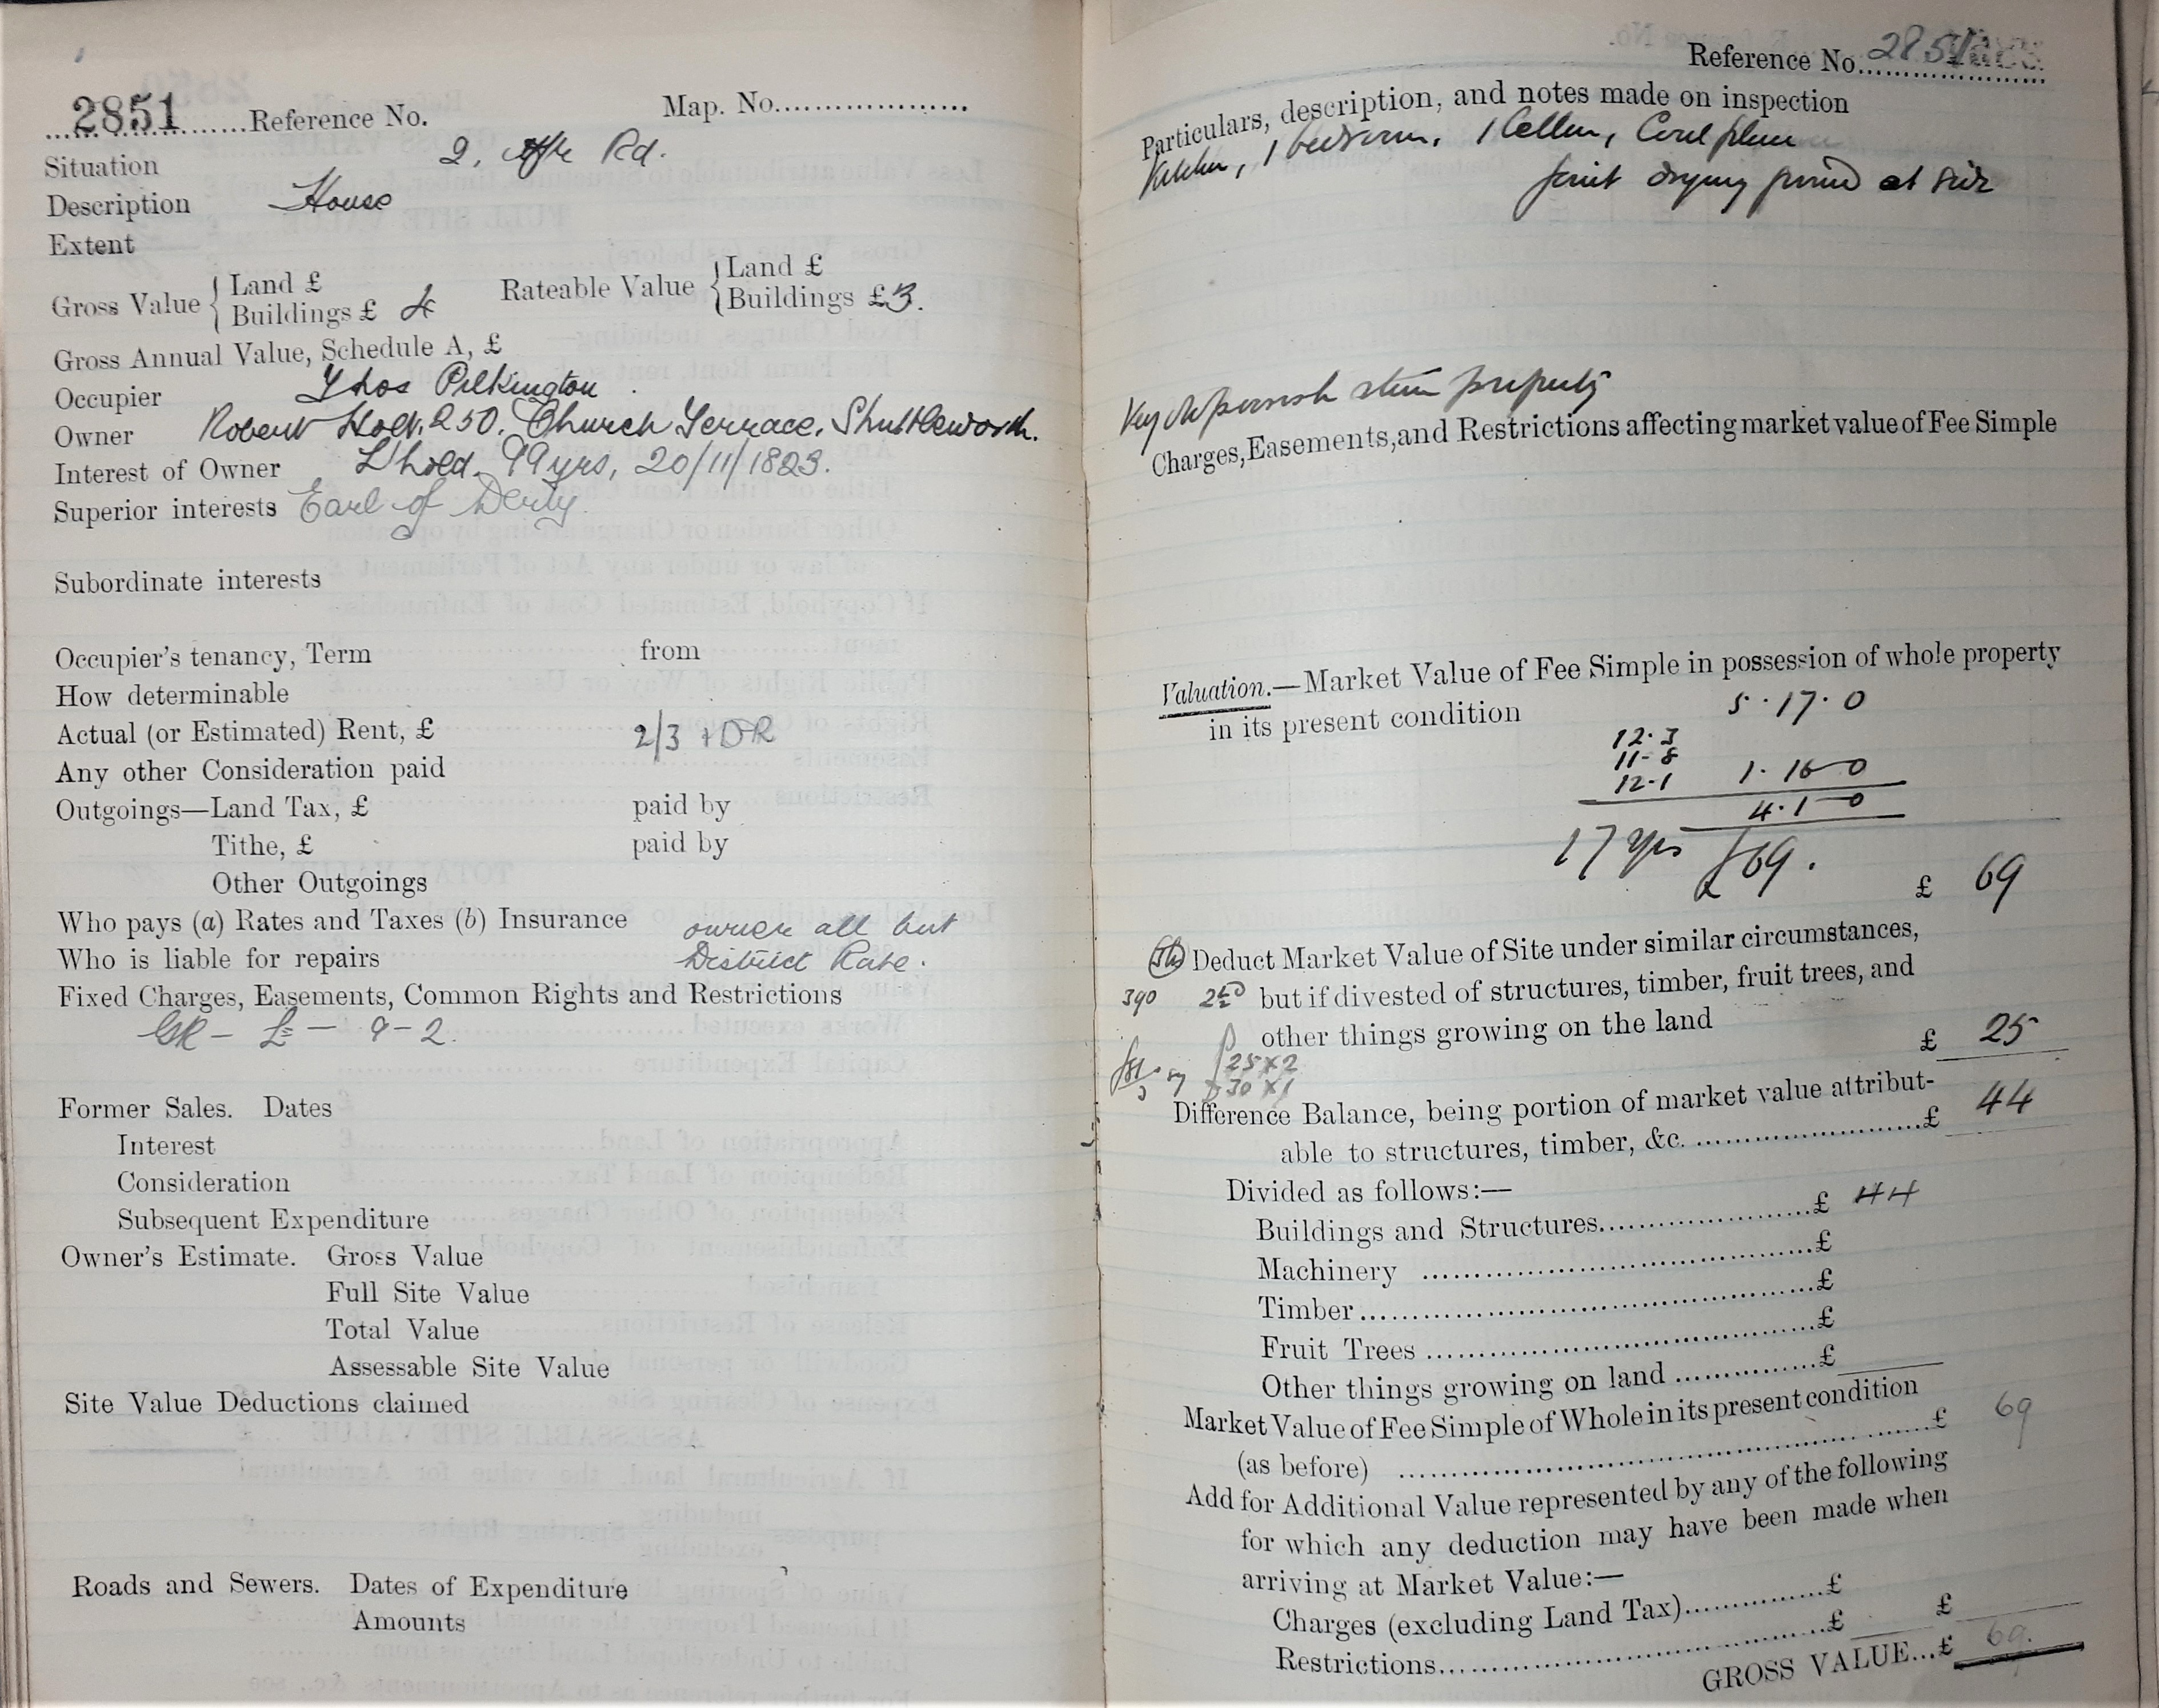 2851 Reference No. Map. No.
Situation 2, Rd.
Description House
Extent
Gross Value { Land £
Buildings £ 4
Rateable Value { Land £
Buildings £ 3.
Gross Annual Value, Schedule A, £
Occupier Thos Pilkington
Owner Robert Holt, 250, Church Terrace, Shuttleworth.
Interest of Owner L'hold. 99 yrs, 20/11/1823.
Superior interests Earl of Derby
Subordinate interests
Occupier's tenancy, Term from
How determinable
Actual (or Estimated) Rent, £ 2/3 + DR
Any other Consideration paid
Outgoings—Land Tax, £ paid by
Tithe, £ paid by
Other Outgoings
Who pays (a) Rates and Taxes (b) Insurance owner all but
Who is liable for repairs District Rate.
Fixed Charges, Easements, Common Rights and Restrictions
GR - £ - 9-2.
Former Sales. Dates
Interest
Consideration
Subsequent Expenditure
Owner's Estimate. Gross Value
Full Site Value
Total Value
Assessable Site Value
Site Value Deductions claimed
Roads and Sewers. Dates of Expenditure
Amounts
Reference No. 2851
Particulars, description, and notes made on inspection
Kitchen, 1 bedroom, 1 Cellar, Coal place
joint drying ground at side
Very old stone property
Charges, Easements, and Restrictions affecting market value of Fee Simple
Valuation.—Market Value of Fee Simple in possession of whole property
in its present condition 5.17.0
12.3
11-8
12.1 1.16-0
4.1-0
17 yrs £69.
£ 69
Deduct Market Value of Site under similar circumstances,
390 but if divested of structures, timber, fruit trees, and
other things growing on the land £ 25
25 x 2
30 x 1
Difference Balance, being portion of market value attribut-
able to structures, timber, &c. £ 44
Divided as follows:—
Buildings and Structures £ 44
Machinery £
Timber £
Fruit Trees £
Other things growing on land £
Market Value of Fee Simple of Whole in its present condition
(as before) £ 69
Add for Additional Value represented by any of the following
for which any deduction may have been made when
arriving at Market Value:—
Charges (excluding Land Tax) £
Restrictions £ £
GROSS VALUE...£ 69.